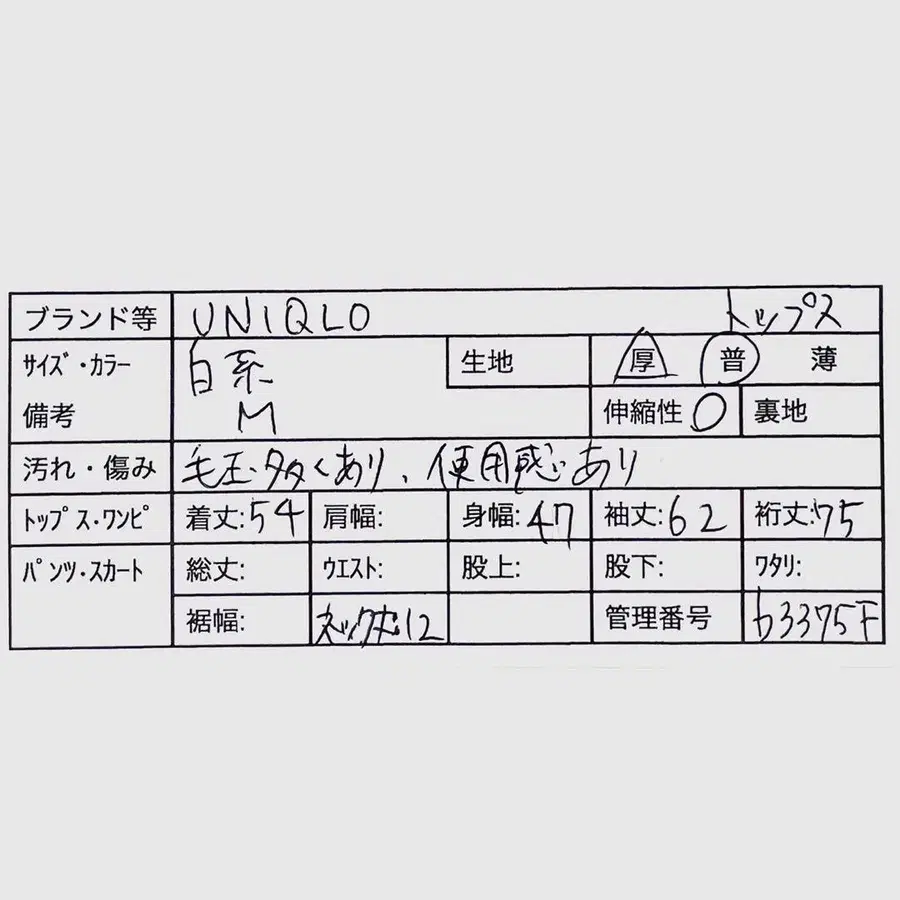 ブランド等 UNIQLO トップス
サイズ・カラー 白系 生地 厚 普 薄
備考 M 伸縮性 ○ 裏地
汚れ・傷み 毛玉多くあり、使用感あり
トップス・ワンピ 着丈:54 肩幅: 身幅:47 袖丈:62 裄丈:75
パンツ・スカート 総丈: ウエスト: 股上: 股下: ワタリ:
裾幅: ネック丈:12 管理番号 b3375F